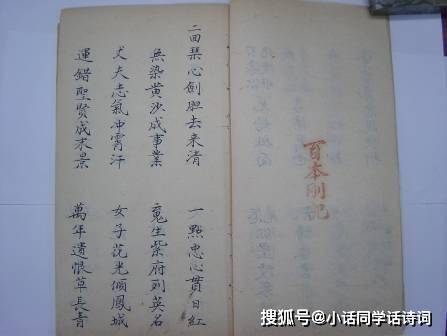 百本剛記
二回琹心劍胆去来清 一點忠心貫日紅
無染黃沙成事業 魂生紫府列英名
丈夫志氣冲霄汗 女子花光傾鳳城
運錯聖賢成末景 萬年遺恨草長青
搜狐号@小话同学话诗词